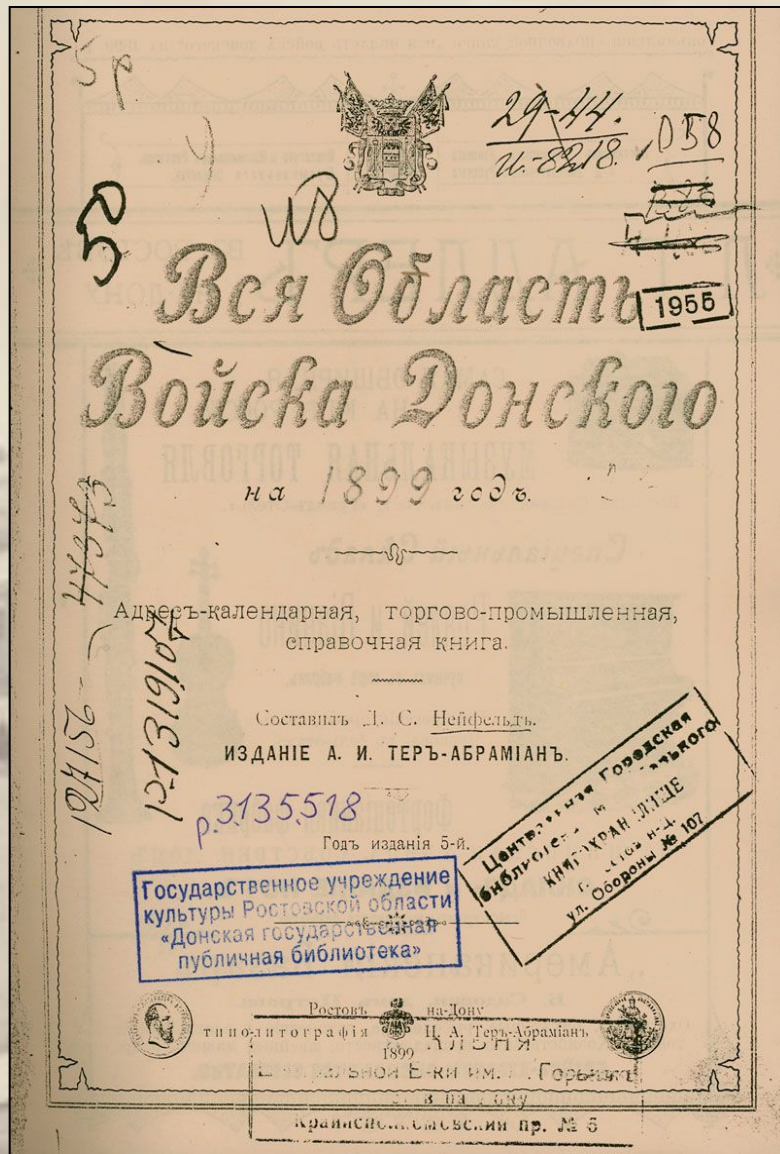 5р
29-44.
и.-8218.
D58
50
ив
Вся Область
1955
Войска Донского
на 1899 годъ.
Адресъ-календарная, торгово-промышленная,
справочная книга.
47373
127156
Составилъ Д. С. Нейфельдъ.
ИЗДАНІЕ А. И. ТЕРЪ-АБРАМІАНЪ.
р.3135.518
Годъ изданія 5-й.
Центральная Городская
библиотека
КНИГОХРАНИЛИЩЕ
ул. Обороны № 107
Государственное учреждение
культуры Ростовской области
«Донская государственная
публичная библиотека»
Ростовъ на-Дону
типо-литографія И. А. Теръ-Абраміанъ
1899
Б-ки им. Горького
пр. № 6